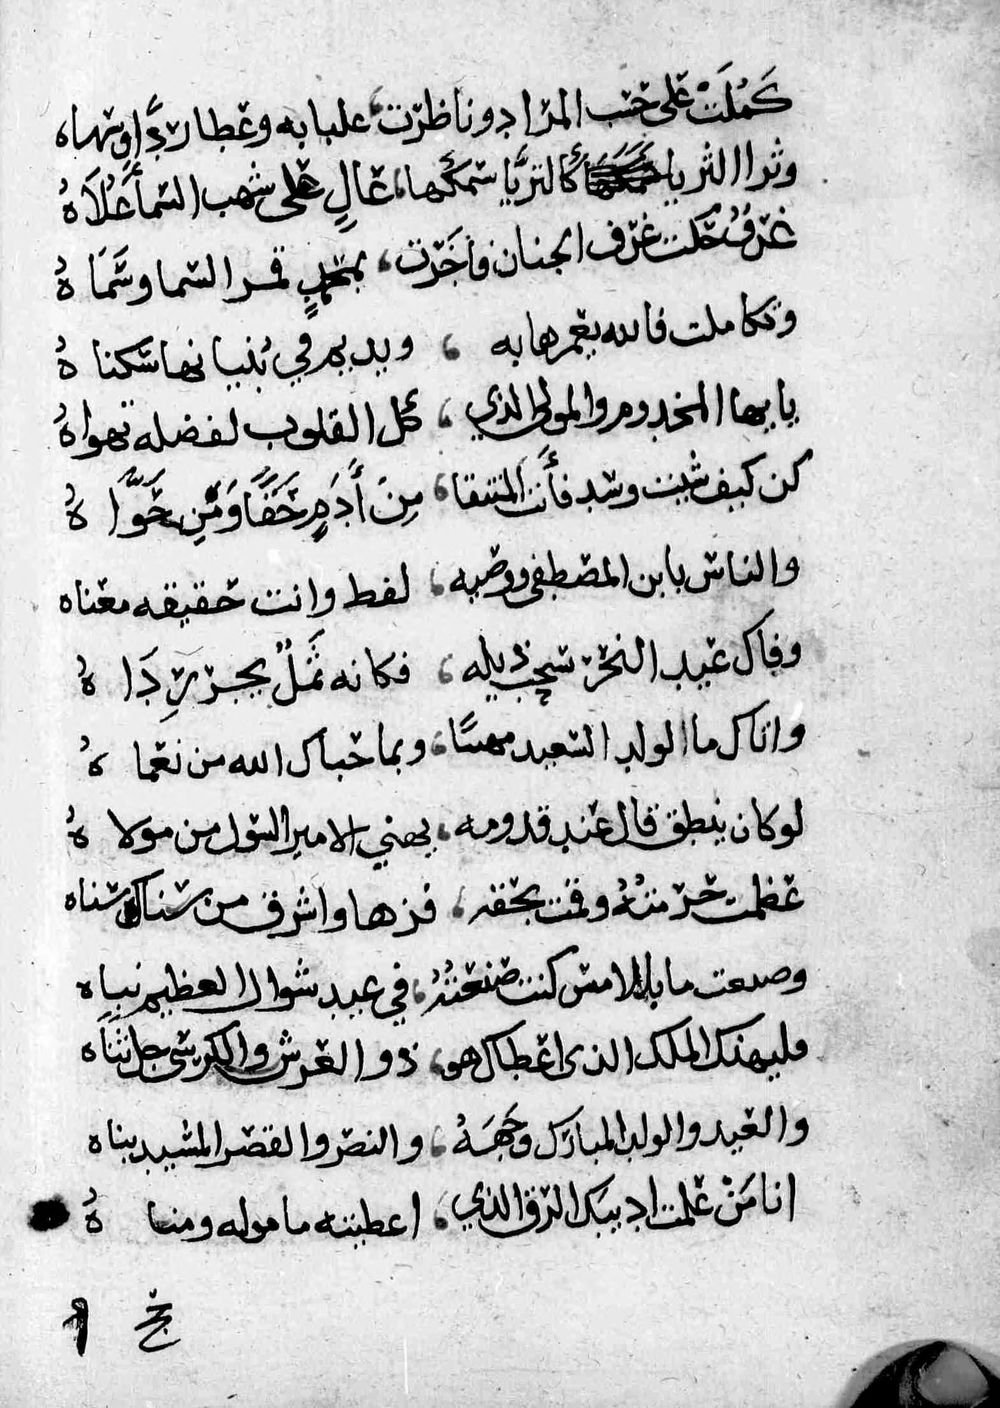 كَمُلَتْ على حسب المراد وناظرت، عليا به وعطارداً وسهاه
وثرا الثريا كالثريّا سمكها، عالٍ على شهب السما أعلاهُ
غرفٌ حكت غرف الجنان فأخرت، بمحمدٍ قمر السما وسَمَاهُ
وتكاملت فالله يعمرها به، ويديم في بنيانها سكناهُ
يايها المخدوم والمولى الذي، كل القلوب لفضله تهواهُ
كن كيف شئت وسد فأنت المنتقا، مِنَ أَدَمٍ حَقًّا وَمِن حَوَّاهُ
والناس يابن المصطفى ووصيه، لفظ وانت حقيقه معناه
وفاك عيد النحر يسحب ذيله، فكانه ثَمَلٌ يجر رِدَاهُ
واتاك ما الولد السعيد مهنّيا، وبما حباك الله من نعماهُ
لو كان ينطق قال عند قدومه، يهني الامير السول من مولاهُ
عظمت حرمتهُ وقمت بحقه، فزها واشرق من سناك سناه
وصنعت ما بالامس كنت صنعتهُ، في عيد شوال العظيم نباه
فليهنك الملك الذي اعطاك هو، ذو العرش والكرسي جل ثناه
والعيد والولد المبارك وجههُ، والنصر والقصر المشيد بناه
انا مَنْ علمت اديبك الرق الذي، اعطيته ماموله ومناهُ